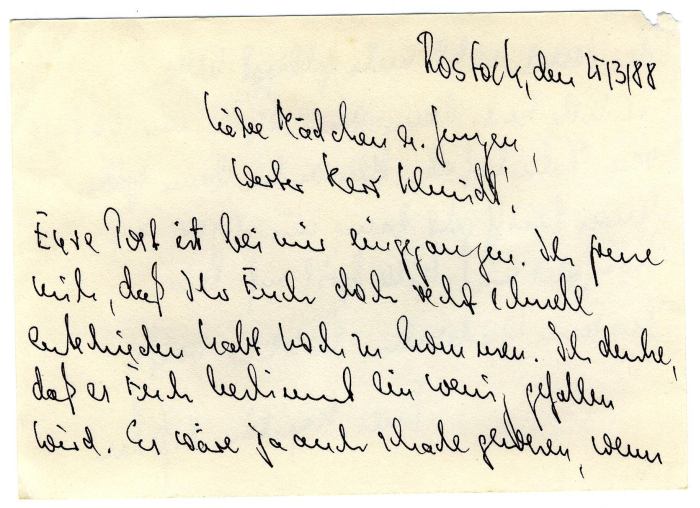 Rostock, den 21/3/88
Liebe Mädchen u. Jungen,
Werter Herr Schmidt!
Eure Post ist bei mir eingegangen. Ich freue
mich, daß Ihr Euch doch recht schnell
entschieden habt noch zu kommen. Ich denke,
daß es Euch bestimmt ein wenig gefallen
wird. Es wäre ja auch schade gewesen, wenn